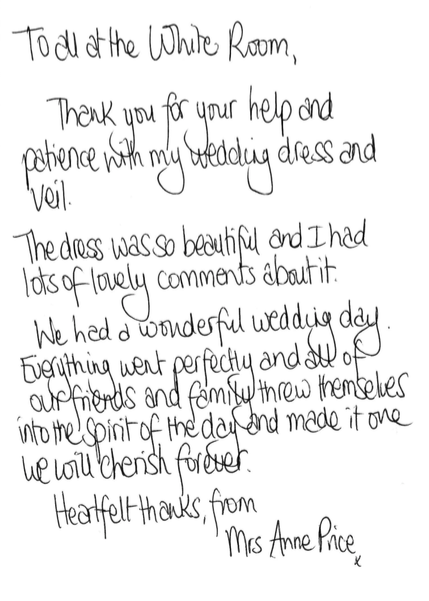 To all at the White Room,
Thank you for your help and
patience with my wedding dress and
veil.
The dress was so beautiful and I had
lots of lovely comments about it.
We had a wonderful wedding day.
Everything went perfectly and all of
our friends and family threw themselves
into the spirit of the day and made it one
we will cherish forever.
Heartfelt thanks, from
Mrs Anne Price
x